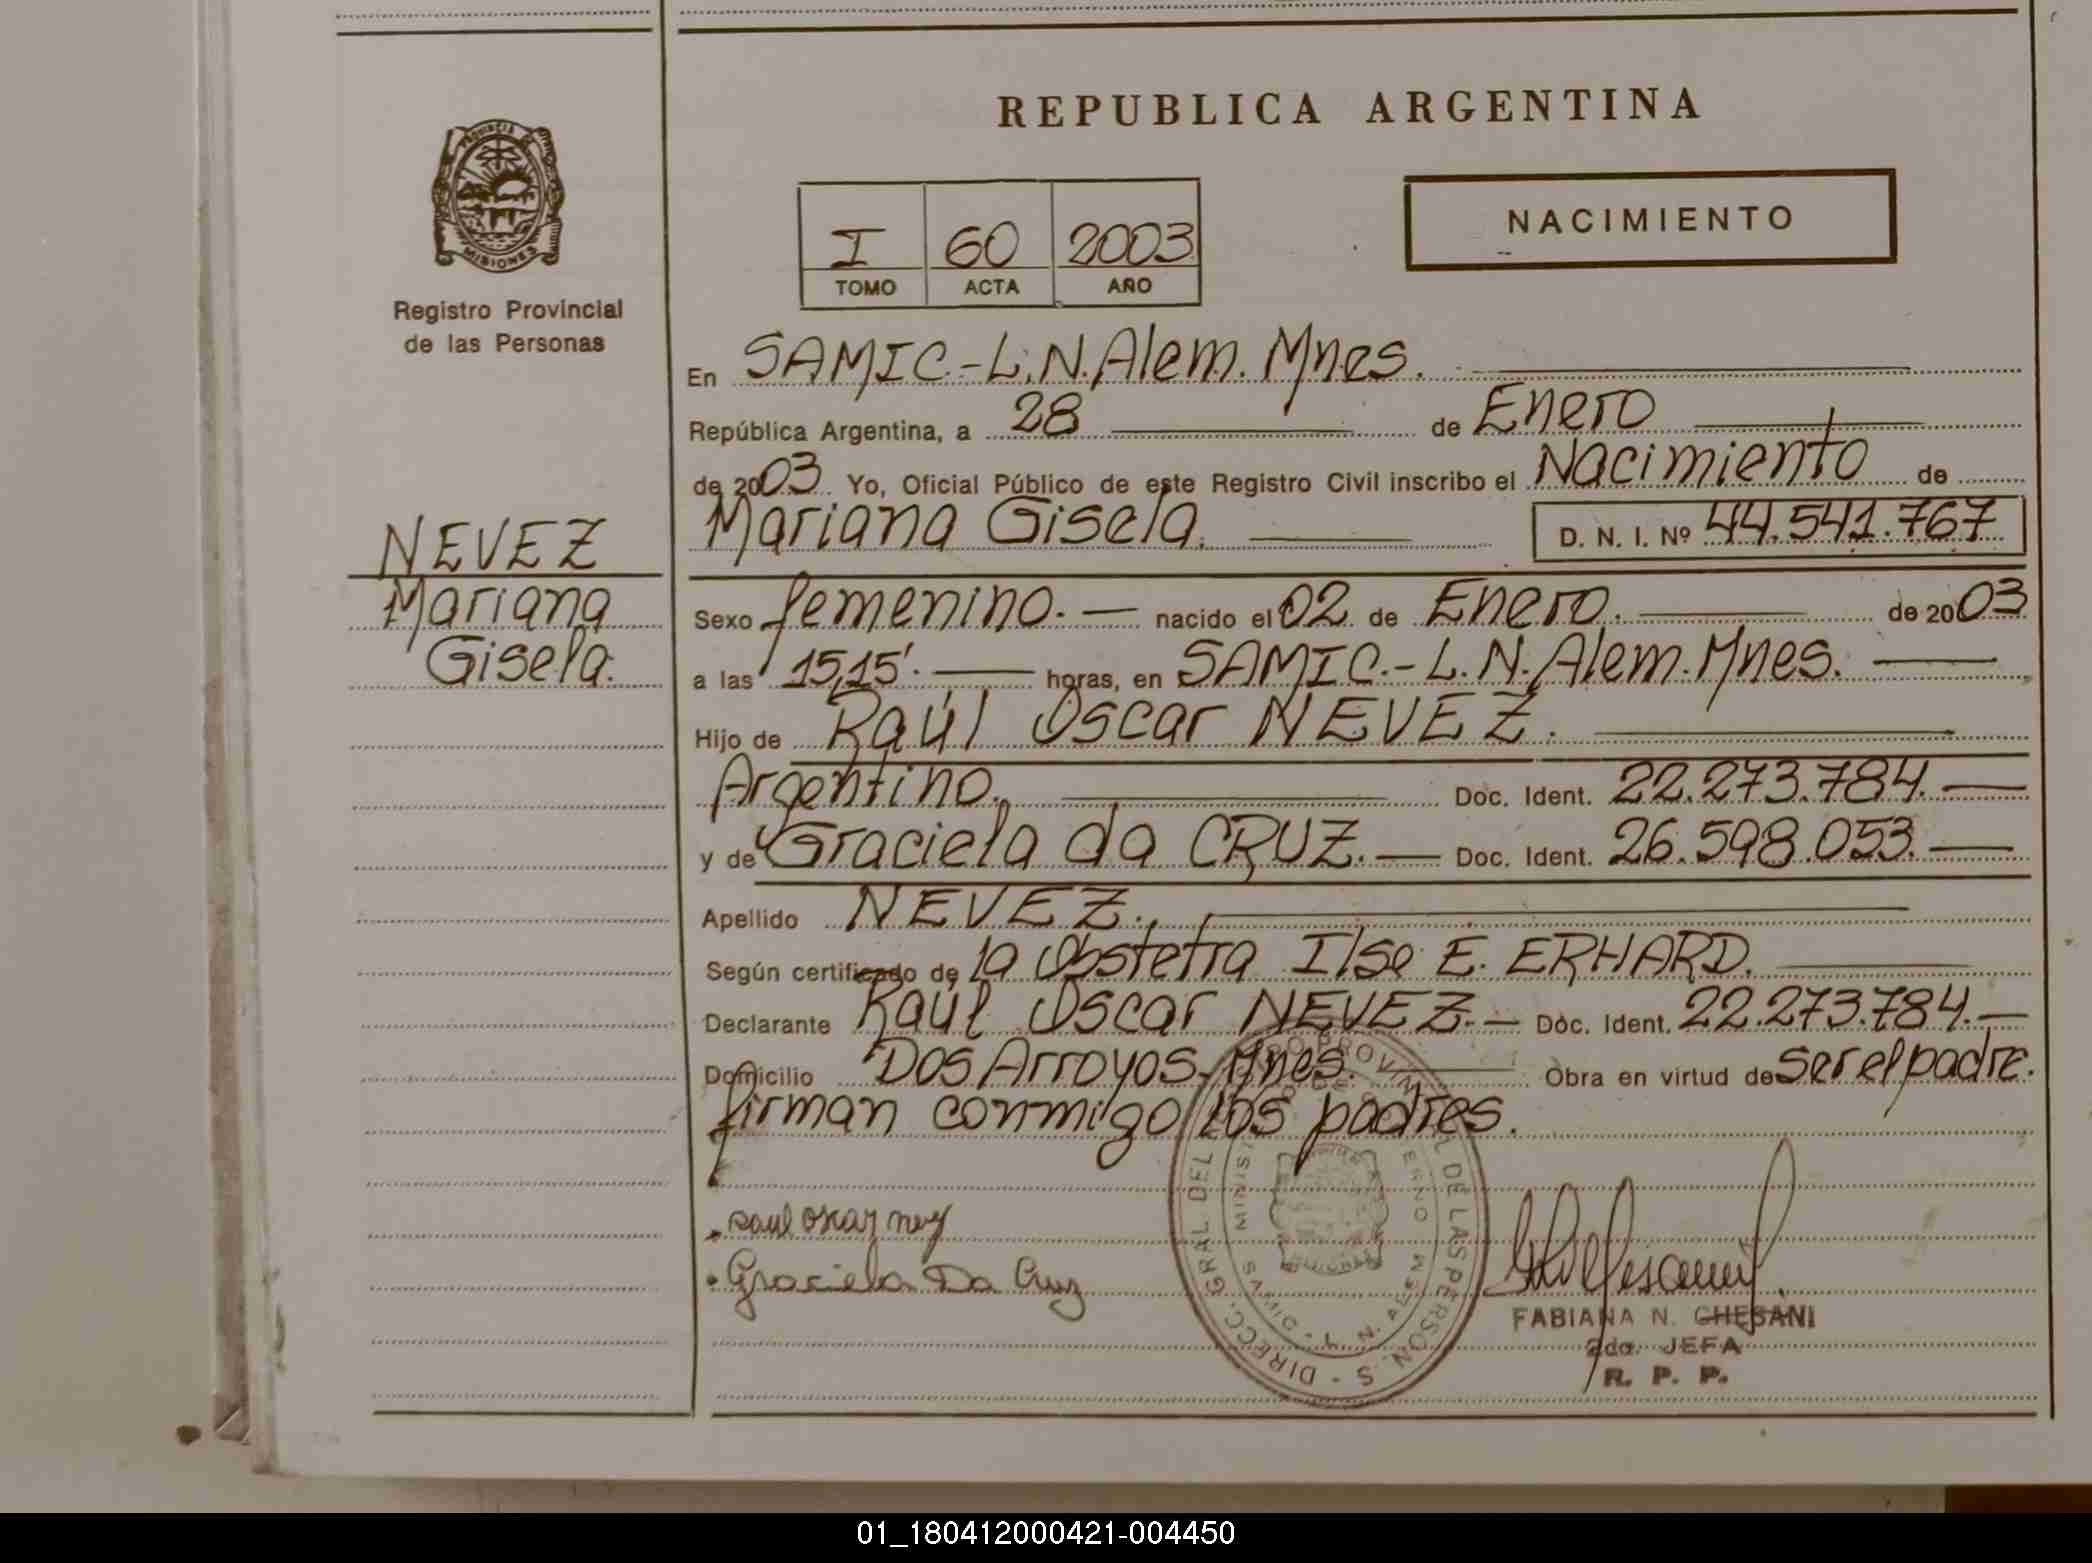 REPUBLICA ARGENTINA
PROVINCIA
MISIONES
Registro Provincial
de las Personas
I 60 2003
TOMO ACTA AÑO
NACIMIENTO
En SAMIC.-L.N.Alem. Mnes.
República Argentina, a 28 de Enero
de 2003 Yo, Oficial Público de este Registro Civil inscribo el Nacimiento de
Mariana Gisela. D. N. I. Nº 44.541.767
NEVEZ
Mariana
Gisela.
Sexo femenino. nacido el 02 de Enero. de 2003
a las 15,15'. horas, en SAMIC.-L.N.Alem.Mnes.
Hijo de Raúl Oscar NEVEZ.
Argentino. Doc. Ident. 22.273.784.
y de Graciela da CRUZ. Doc. Ident. 26.598.053.
Apellido NEVEZ.
Según certificado de la Obstetra Ilse E. ERHARD.
Declarante Raúl Oscar NEVEZ. Doc. Ident. 22.273.784.
Domicilio Dos Arroyos. Mnes. Obra en virtud de ser el padre.
firman conmigo los padres.
Graciela Da Cruz
DIRECC. GRAL. DEL PROVIN DE LAS PERSON S
SAMIC - L. N. ALEM
FABIANA N. GHESANI
2da. JEFA
R. P. P.
01_180412000421-004450